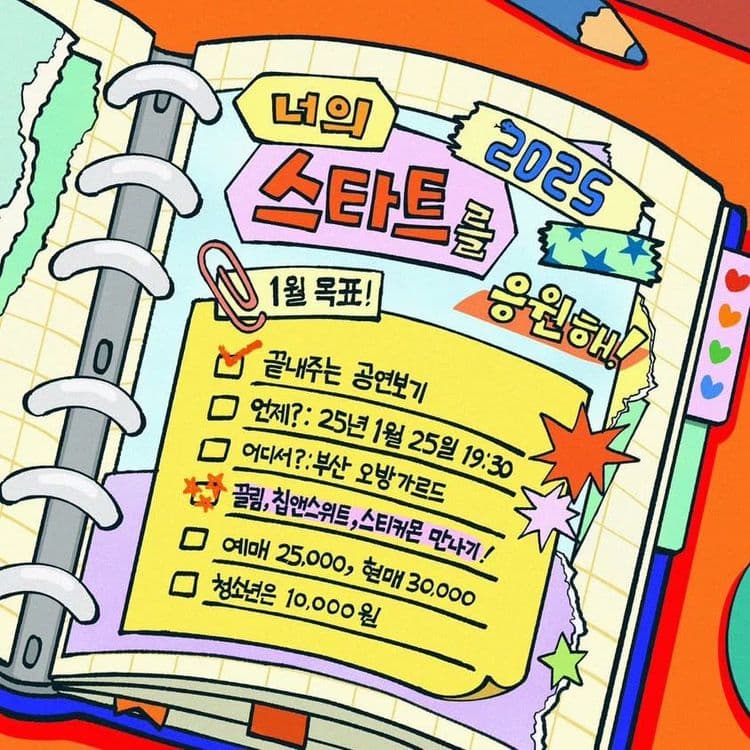 너의
2025
스타트를
응원해!
1월 목표!
끝내주는 공연보기
언제?: 25년 1월 25일 19:30
어디서?: 부산 오방가르드
끌림, 칩앤스위트, 스티커몬 만나기!
예매 25,000, 현매 30,000
청소년은 10,000원